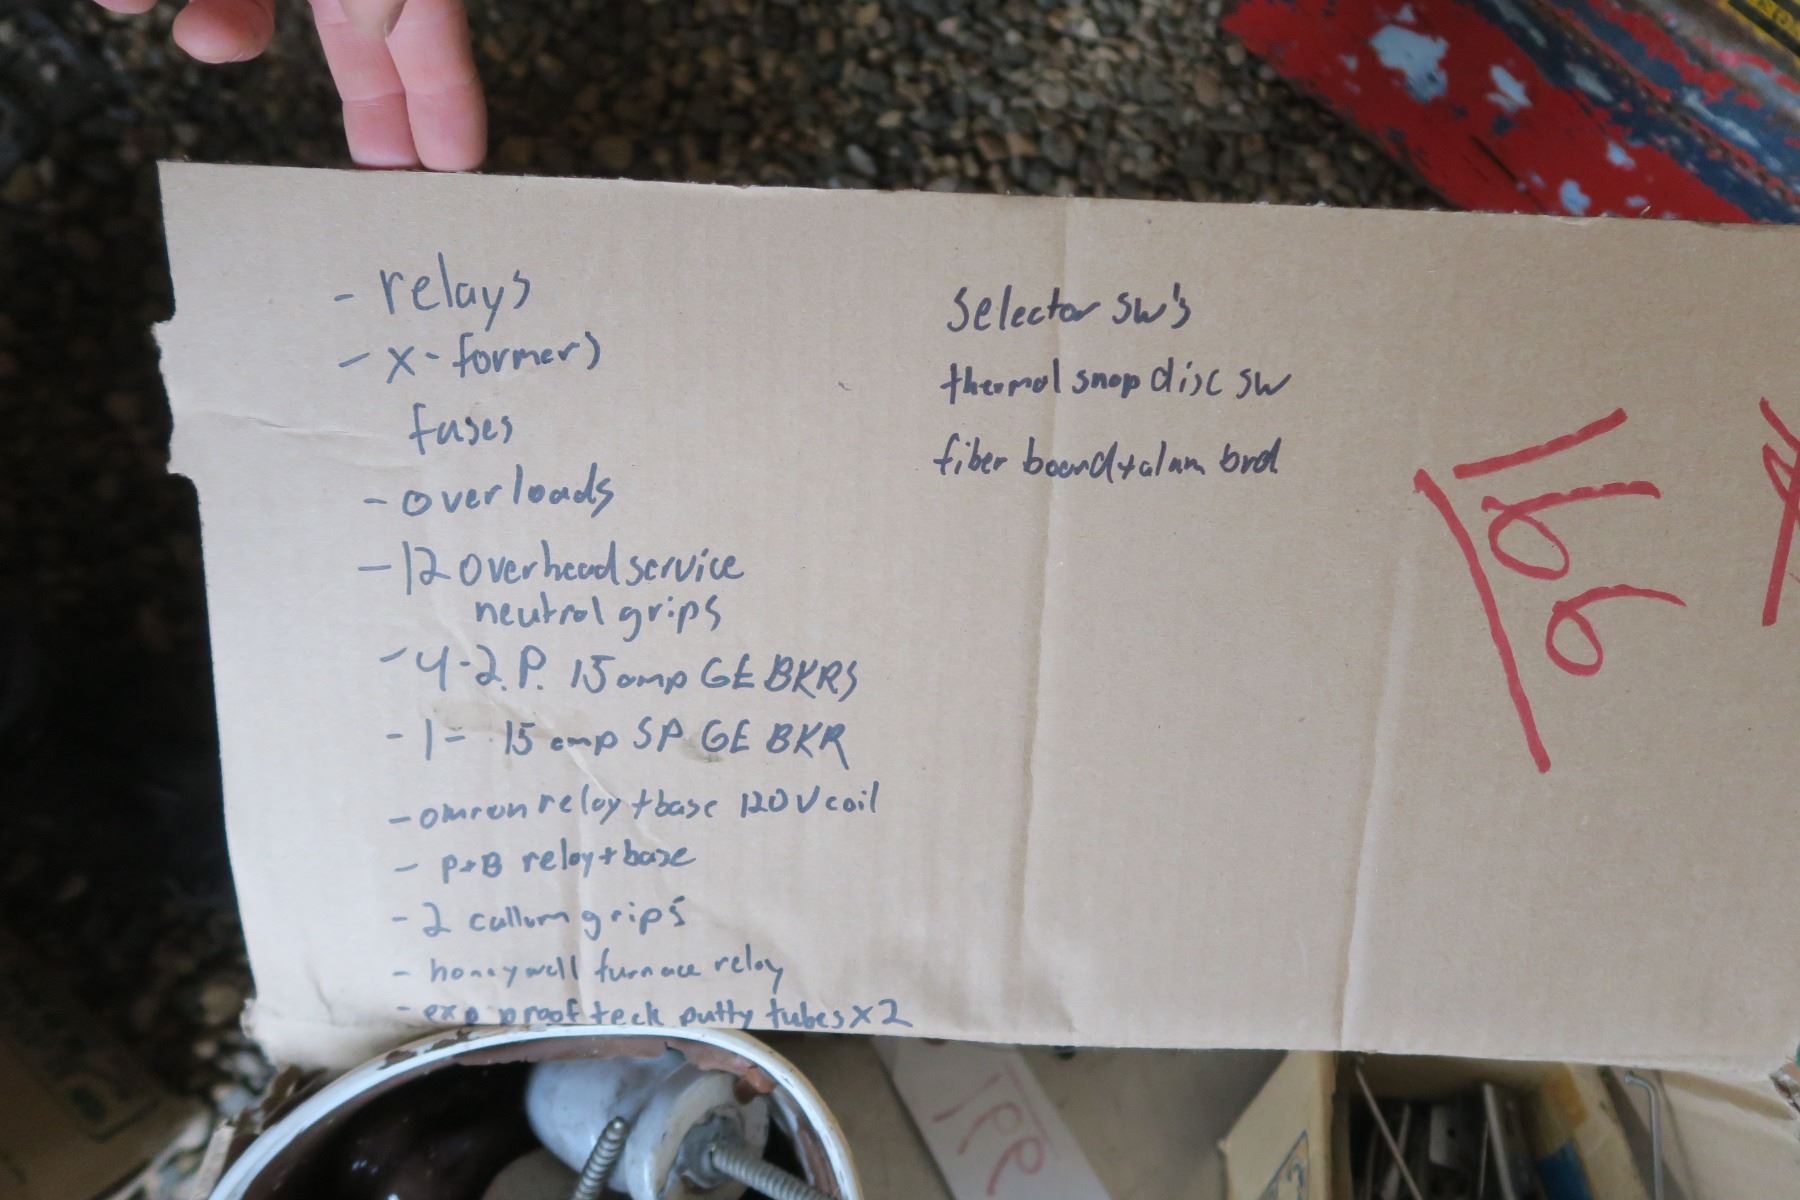 - relays
- x-formers
fuses
- overloads
- 12 overhead service
neutral grips
- 4-2.P. 15 amp GE BKRS
- 1 - 15 amp SP GE BKR
- omron relay + base 120 V coil
- P+B relay + base
- 2 cullum grips
- honeywell furnace relay
- exp proof teck putty tubes x 2
selector sw's
thermal snap disc sw
fiber board + alum brd